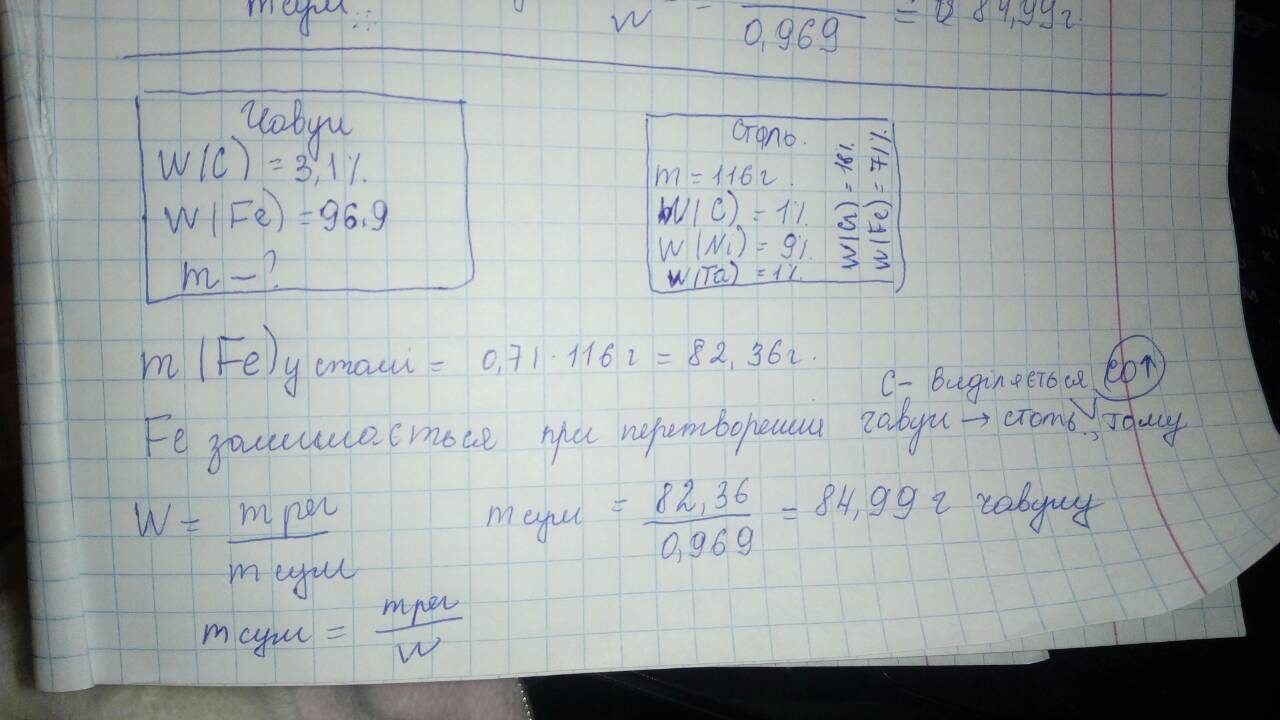 m сум
W = 0,969 = 84,99 г.
Чавун
W(C) = 3,1%.
W(Fe) = 96.9
m – ?
Сталь.
m = 116 г.
W(C) = 1%.
W(Ni) = 9%.
W(Ta) = 1%.
W(Cr) = 18%
W(Fe) = 71%
m (Fe) у сталі = 0,71 · 116 г = 82,36 г.
С – виділяється CO↑
Fe залишається при перетворенні чавун → сталь, тому
W = m реч / m сум
m сум = 82,36 / 0,969 = 84,99 г чавуну
m сум = m реч / W